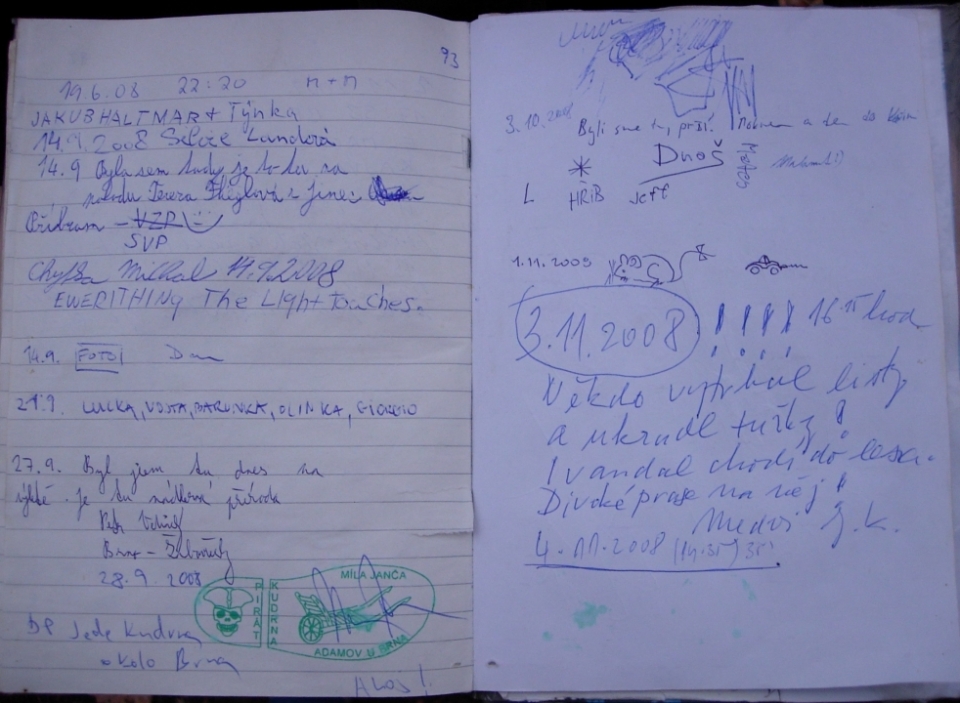 93
19.6.08 22:20 M+M
JAKUB HALTMAR + Týnka
14.9.2008
14.9 Byla sem tady je to tu na
Tereza z Jinec
Příbram - VZP
SVP
Michal 14.9.2008
EWERITHING The Light touches.
14.9. FOTO
21.9. LUCKA, VOJTA, BARUNKA, OLINKA, GIORGIO
27.9. Byl jsem tu dnes na
je tu nádherná příroda
Petr
Brno - Žabovřesky
28.9.2008
PIRÁT KUDRNA
MÍLA JANČA
ADAMOV U BRNA
DP Jede Kudrna
okolo Brna
AHOJ!
3.10.2008 Byli sme tu, prší. a den do
Dnoš
L HŘIB JEFF
1.11.2008
3.11.2008 !!!! 16 15 hod.
Někdo vytrhal listy
a ukradl tužky!
I vandal chodí do lesa.
Divoké prase na něj!
Medvěd J.K.
4.11.2008